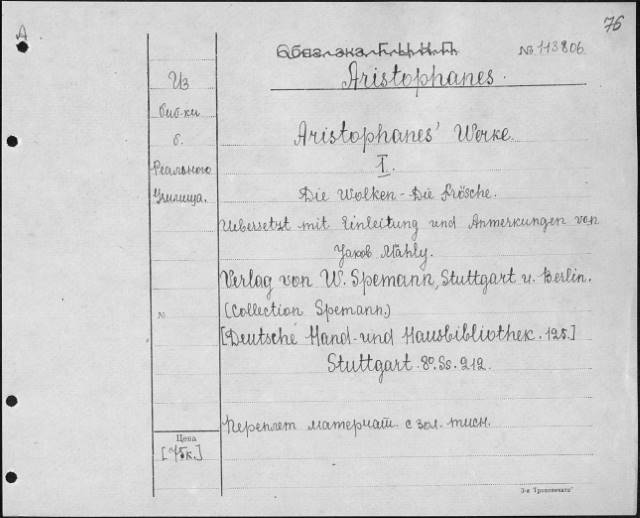 76
А
Обяз. экз. Г.Ц.К.П.
№ 113806.
Aristophanes.
Из
биб-ки
б.
Реального
Училища.
Aristophanes' Werke.
I.
Die Wolken - Die Frösche.
Uebersetzt mit Einleitung und Anmerkungen von
Jakob Mähly.
Verlag von W. Spemann, Stuttgart u. Berlin.
№
(Collection Spemann.)
[Deutsche Hand- und Hausbibliothek. 125.]
Stuttgart. 8º. Ss. 212.
Переплет матерчат. с зол. тисн.
Цена